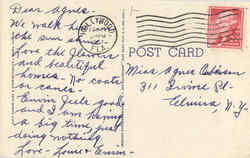 Dear Agnes -
We walk in
the sun and
love the flowers
and beautiful
homes - No coats
or canes -
Erwin feels good
and I am having
a big time just
doing nothing
Love - Louise & Erwin -
HOLLYWOOD
FLA.
POST CARD
Miss Agnes
311 Irvine Pl -
Elmira, N.Y.